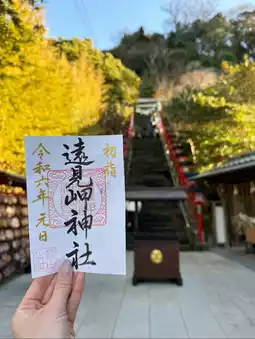 初詣
遠見岬神社
令和六年元日